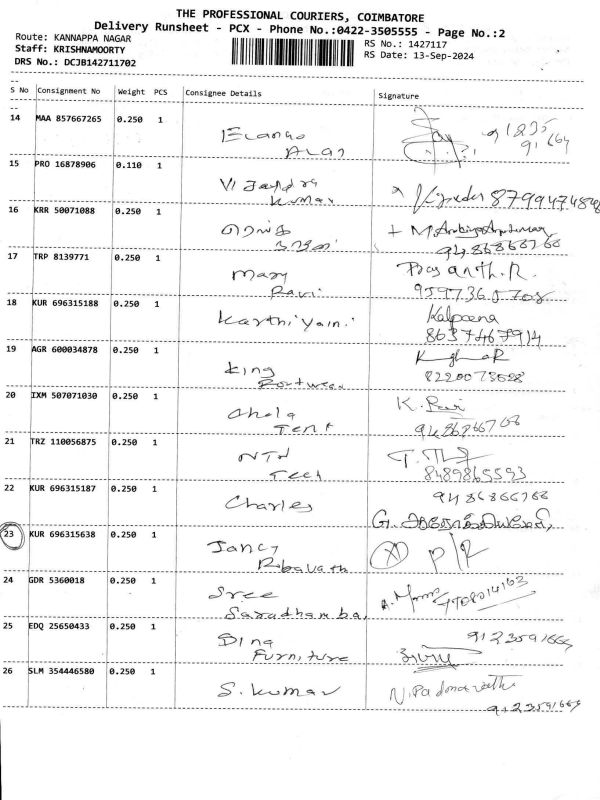 THE PROFESSIONAL COURIERS, COIMBATORE
Delivery Runsheet - PCX - Phone No.:0422-3505555 - Page No.:2
Route: KANNAPPA NAGAR
RS No.: 1427117
Staff: KRISHNAMOORTY
RS Date: 13-Sep-2024
DRS No.: DCJB142711702
S No Consignment No Weight PCS Consignee Details Signature
14 MAA 857667265 0.250 1
15 PRO 16878906 0.110 1 Vijayendra
Kumar
16 KRR 50071088 0.250 1
9486866768
17 TRP 8139771 0.250 1 Mary Prasanth.R.
Ravi
18 KUR 696315188 0.250 1 Karthiyaini Kalpana
8637467914
19 AGR 600034878 0.250 1 King
Footwear
20 IXM 507071030 0.250 1 Chola K. Ravi
Tent 9486866768
21 TRZ 110056875 0.250 1 NTN
Tech 8489865593
22 KUR 696315187 0.250 1 Charles 9486866768
23 KUR 696315638 0.250 1 Jancy P/R
24 GDR 5360018 0.250 1 Sree
Saradhamba
25 EDQ 25650433 0.250 1 Dina 9123591664
Furniture
26 SLM 354446580 0.250 1 S. Kumar N. Padmavathi
9123591664